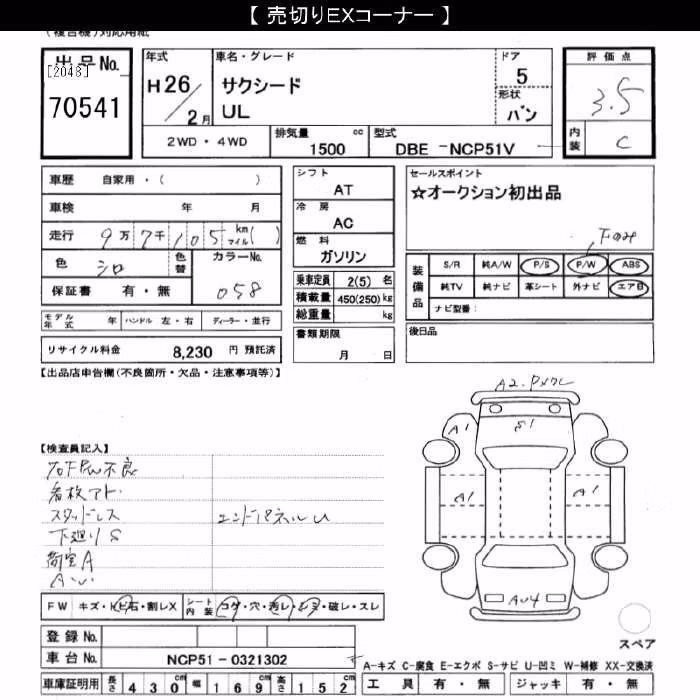 【 売切りEXコーナー 】
(複合機)対応用紙
出品No. [2048] 70541
年式 H26/2月
車名・グレード サクシード UL
ドア 5
形状 バン
評価点 3.5
内装 C
2WD・4WD
排気量 1500 cc
型式 DBE -NCP51V
車歴 自家用・( )
車検 年 月
走行 9万7千105 km マイル( )
色 シロ 色替 カラーNo. 058
保証書 有・無
モデル年式 年 ハンドル 左・右 ディーラー・並行
リサイクル料金 8,230 円 預託済
シフト AT
冷房 AC
燃料 ガソリン
乗車定員 2(5) 名
積載量 450(250) kg
総重量 kg
書類期限 月 日
セールスポイント
☆オークション初出品
Fのみ
装備品 S/R 純A/W P/S P/W ABS
純TV 純ナビ 革シート 外ナビ エアB
ナビ型番:
後日品
【出品店申告欄(不良箇所・欠品・注意事項等)】
A2.Pメクレ
A1 S1
A1 A1
AU4
【検査員記入】
右FPW不良
看板アト.
スタッドレス エンドパネルU
下廻りS
荷室A
A.U.
FW キズ・トビ石・割レX シート内装 コゲ・穴・汚レ・シミ・破レ・スレ
登録No.
車台No. NCP51-0321302
スペア
A-キズ C-腐食 E-エクボ S-サビ U-凹ミ W-補修 XX-交換済
車庫証明用 長さ 430cm 幅 169cm 高さ 152cm
工具 有・無 ジャッキ 有・無